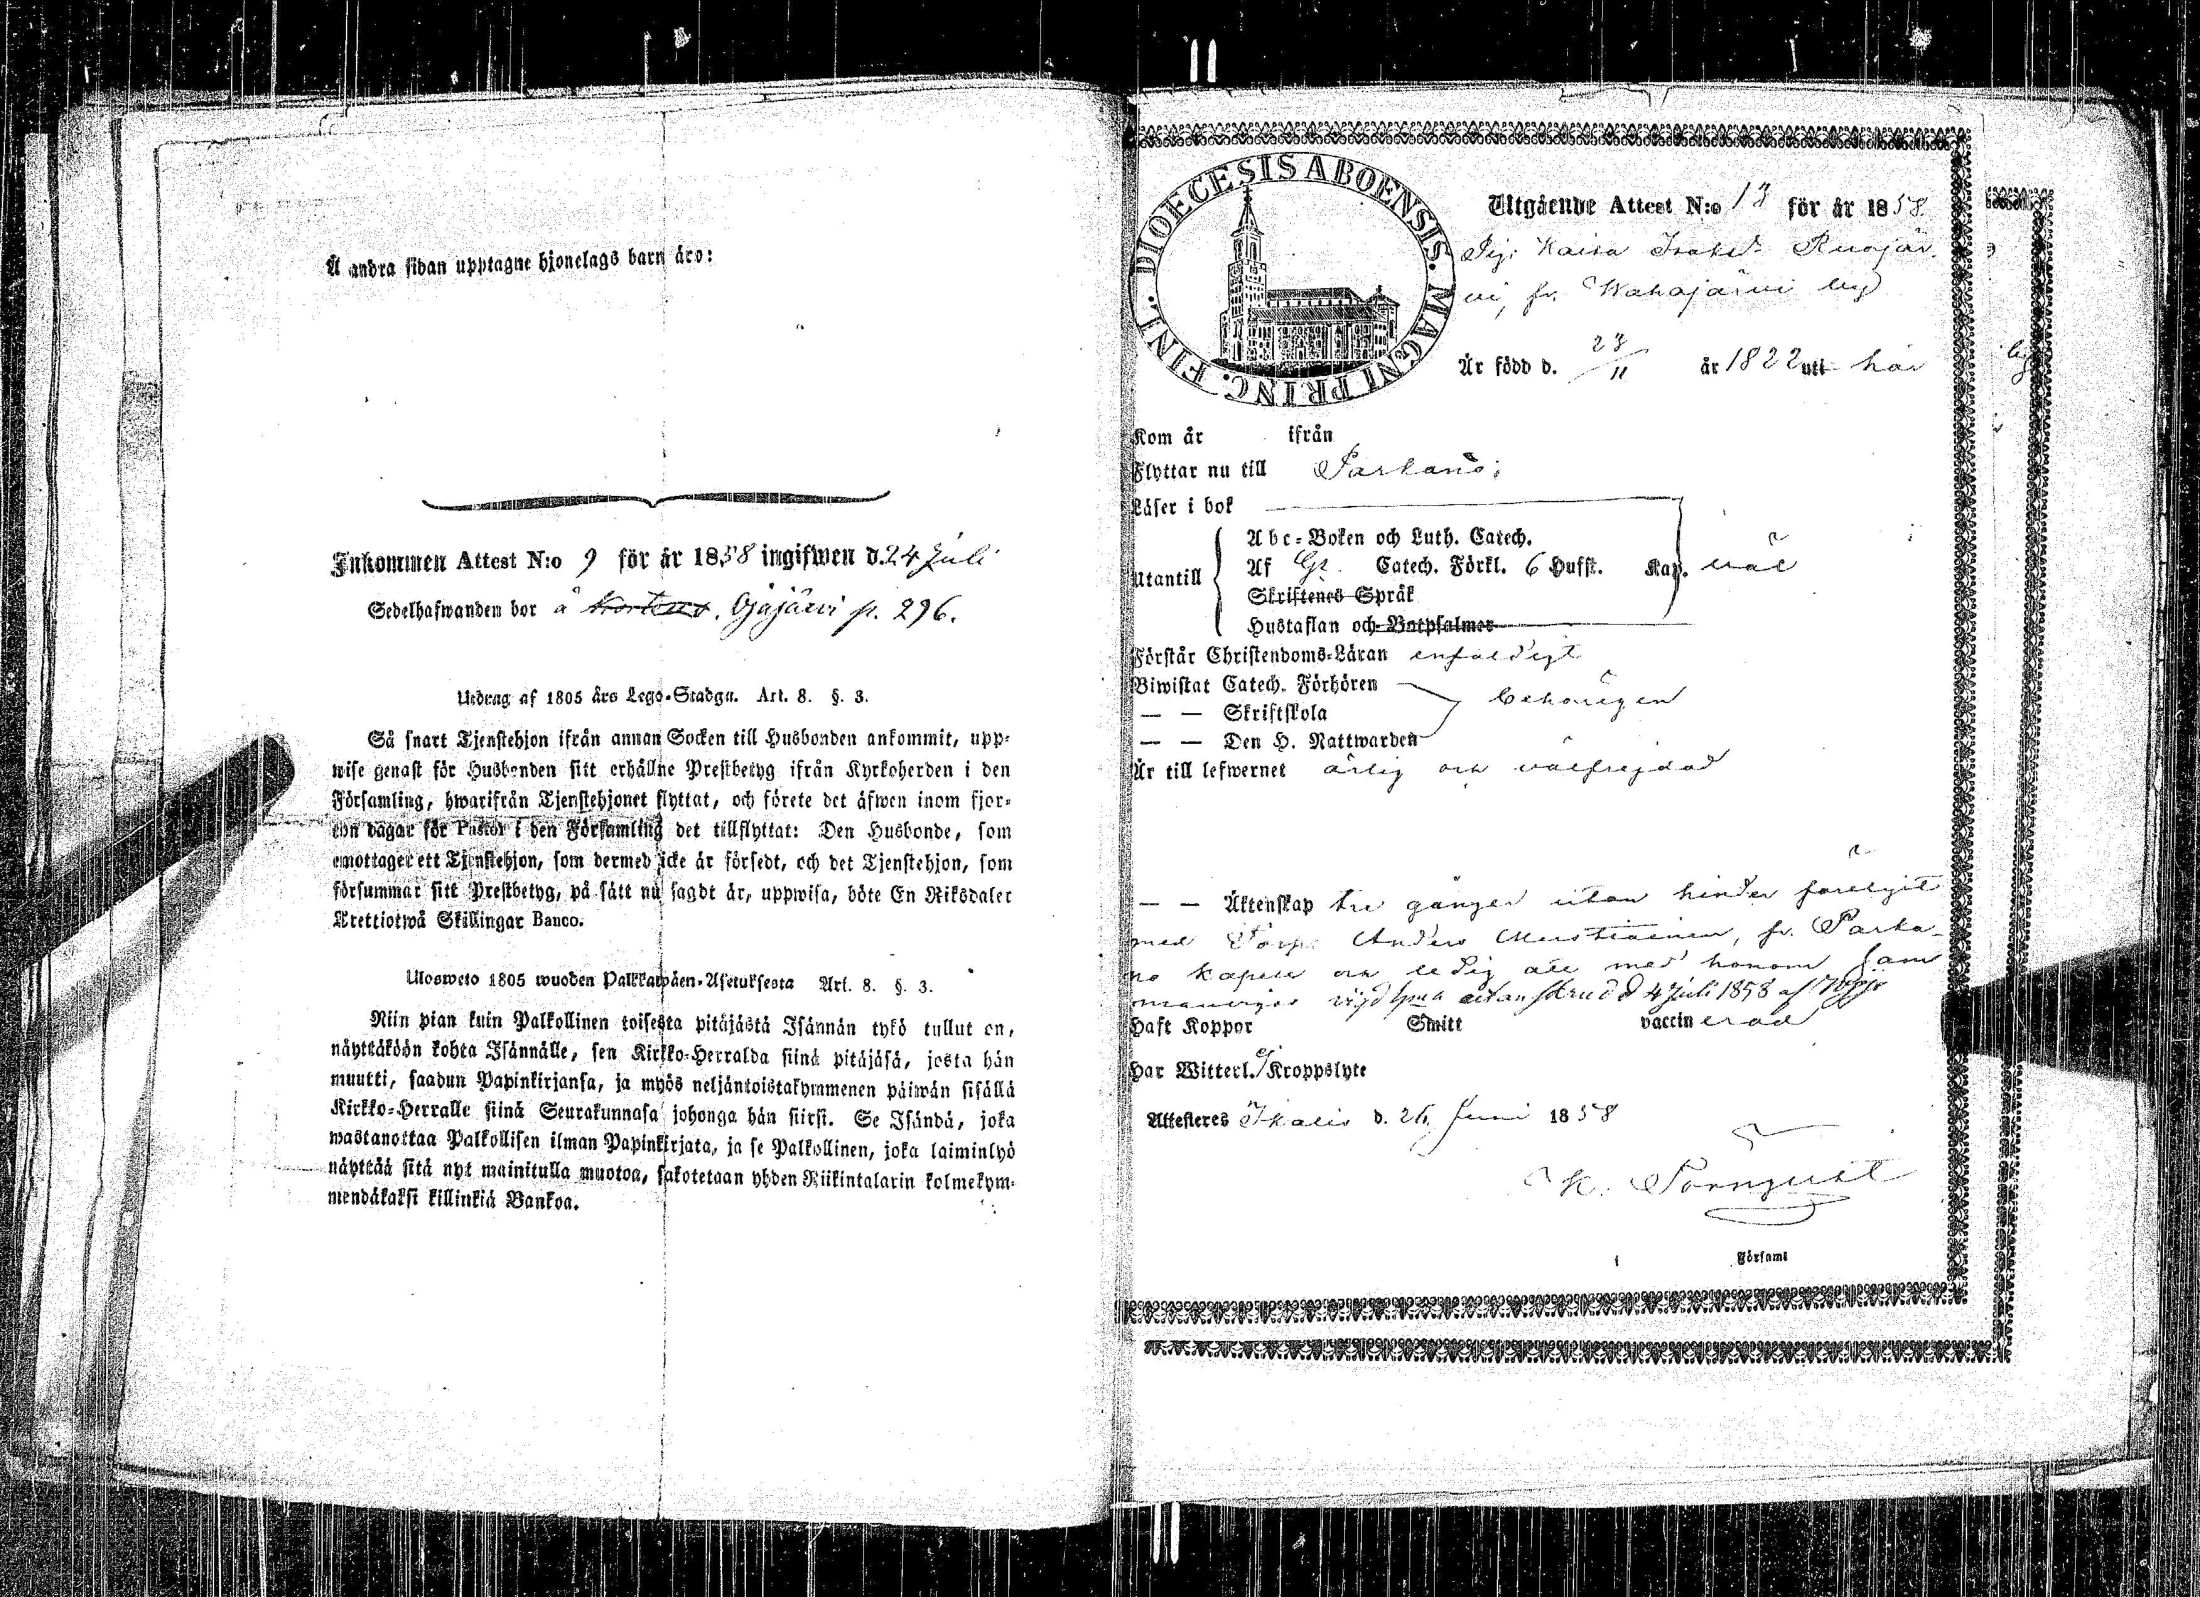 Å andra sidan upptagne hjonelags barn äro:
Inkommen Attest N:o 9 för år 1858 ingifwen d. 24 Juli
Sedelhafwanden bor å Ojajärvi p. 296.
Utdrag af 1805 års Lego-Stadga. Art. 8. §. 3.
Så snart Tjenstehjon ifrån annan Socken till Husbonden ankommit, upp-
wise genast för Husbonden sitt erhållne Prestbetyg ifrån Kyrkoherden i den
Församling, hwarifrån Tjenstehjonet flyttat, och förete det äfwen inom fjor-
ton dagar för Pastor i den Församling det tillflyttat: Den Husbonde, som
emottager ett Tjenstehjon, som dermed icke är försedt, och det Tjenstehjon, som
försummar sitt Prestbetyg, på sätt nu sagdt är, uppwisa, böte En Riksdaler
Trettiotwå Skillingar Banco.
Ulosweto 1805 wuoden Palkkawäen-Asetuksesta Art. 8. §. 3.
Niin pian kuin Palkollinen toisesta pitäjästä Isännän tykö tullut on,
näyttäköön kohta Isännälle, sen Kirkko-Herralda siinä pitäjäsä, josta hän
muutti, saadun Papinkirjansa, ja myös neljäntoistakymmenen päiwän sisällä
Kirkko-Herralle siinä Seurakunnasa johonga hän siirsi. Se Isändä, joka
wastanottaa Palkollisen ilman Papinkirjata, ja se Palkollinen, joka laiminlyö
näyttää sitä nyt mainitulla muotoa, sakotetaan yhden Riikintalarin kolmekym-
mendäkaksi killinkiä Bankoa.
DIOECESIS ABOENSIS. MAGNI PRINC. FINL.
Utgående Attest N:o 13 för år 1858.
Pig. Kaisa Isaksd. Ruojär-
vi, fr. Wahojärvi by
Är född d. 23/11 år 1822 uti här
Kom år ifrån
Flyttar nu till Parkano;
Läser i bok
Utantill
Abc-Boken och Luth. Catech.
Af Gr. Catech. Förkl. 6 Hufst. Kap. väl
Skriftenes Språk
Hustaflan och Botpsalmer
Förstår Christendoms-Läran enfaldigt
Biwistat Catech. Förhören
— — Skriftskola behörigen
— — Den H. Nattwarden
Är till lefwernet ärlig och välfrejdad
— — Äktenskap tre gånger utan hinder förelyst
med Torp. Anders, fr. Parka-
no kapell och ledig att med honom sam
manvigas vigd d 4 Juli 1858 af
Haft Koppor Smitt vaccinerad
Har Witterl. ej Kroppslyte
Attesteres Ikalis d. 26 Juni 1858
K. Törnqvist
Församl